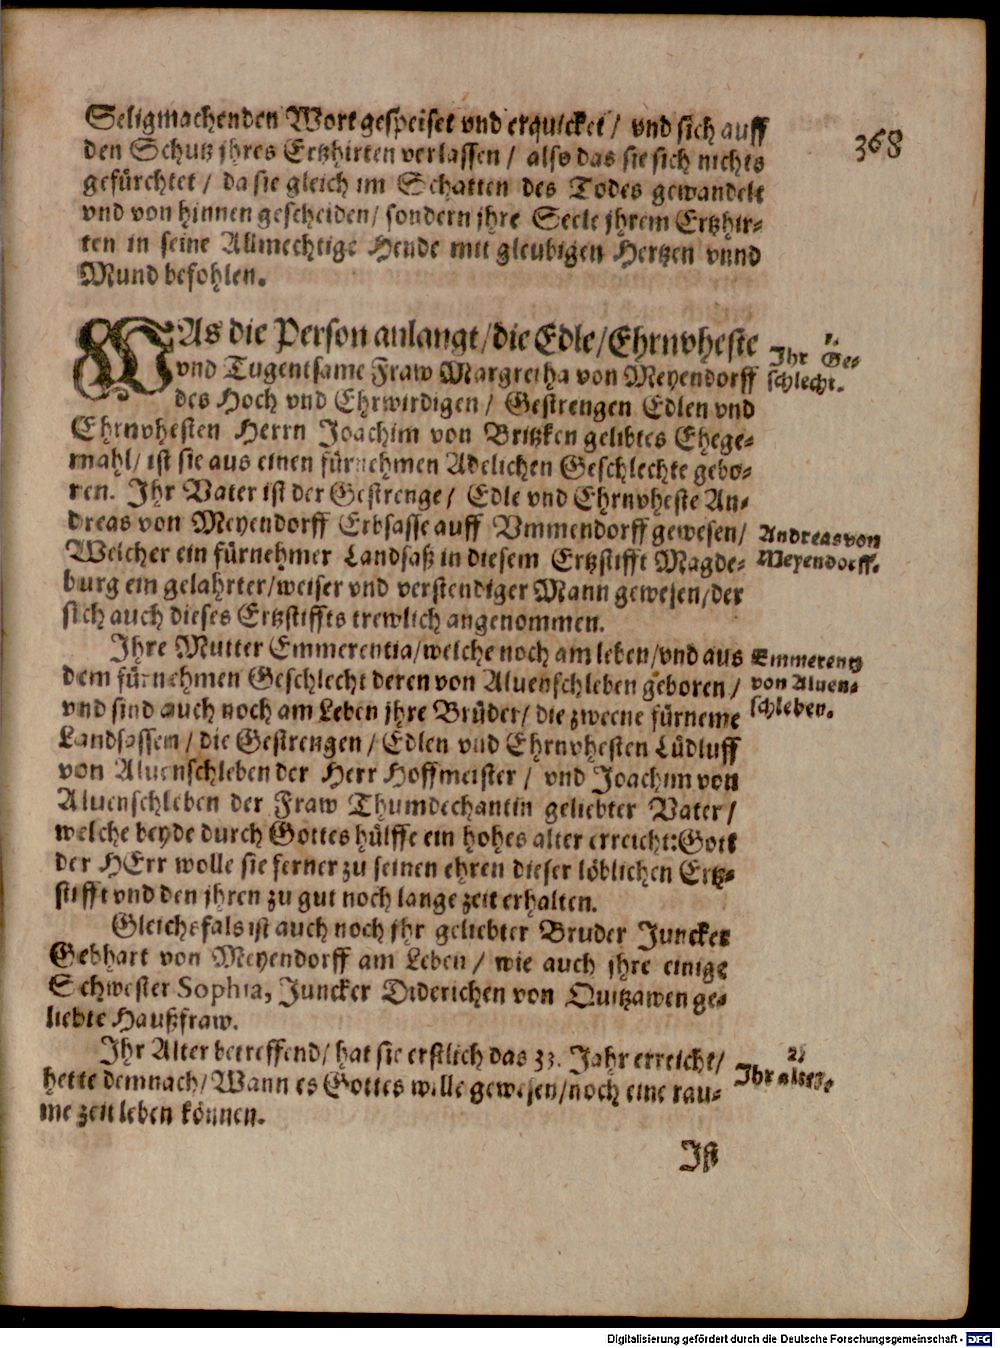 368
Seligmachenden Wort gespeiset vnd erquicket / vnd sich auff
den Schutz jhres Ertzhirten verlassen / also das sie sich nichts
gefürchtet / da sie gleich im Schatten des Todes gewandelt
vnd von hinnen gescheiden / sondern jhre Seele jhrem Ertzhir-
ten in seine Allmechtige Hende mit gleubigen Hertzen vnnd
Mund befohlen.
WAs die Person anlangt / die Edle / Ehrnvheste
vnd Tugentsame Fraw Margretha von Meyendorff
des Hoch vnd Ehrwirdigen / Gestrengen Edlen vnd
Ehrnvhesten Herrn Joachim von Britzken gelibtes Ehege-
mahl / ist sie aus einen fürnehmen Adelichen Geschlechte gebo-
ren. Ihr Vater ist der Gestrenge / Edle vnd Ehrnvheste An-
dreas von Meyendorff Erbsasse auff Vmmendorff gewesen /
Welcher ein fürnehmer Landsaß in diesem Ertzstifft Magde-
burg ein gelahrter / weiser vnd verstendiger Mann gewesen / der
sich auch dieses Ertzstiffts trewlich angenommen.
Ihre Mutter Emmerentia / welche noch am leben / vnd aus
dem fürnehmen Geschlecht deren von Aluenschleben geboren /
vnd sind auch noch am Leben jhre Brüder / die zweene fürneme
Landsassen / die Gestrengen / Edlen vnd Ehrnvhesten Lüdluff
von Aluenschleben der Herr Hoffmeister / vnd Joachim von
Aluenschleben der Fraw Thumdechantin geliebter Vater /
welche beyde durch Gottes hülffe ein hohes alter erreicht: Gott
der HErr wolle sie ferner zu seinen ehren dieser löblichen Ertz-
stifft vnd den jhren zu gut noch lange zeit erhalten.
Gleichsfals ist auch noch jhr geliebter Bruder Juncker
Gebhart von Meyendorff am Leben / wie auch jhre einige
Schwester Sophia, Juncker Diderichen von Quitzawen ge-
liebte Haußfraw.
Ihr Alter betreffend / hat sie erstlich das 33. Jahr erreicht /
hette demnach / Wann es Gottes wille gewesen / noch eine rau-
me zeit leben können.
Ist
1.
Ihr Ge-
schlecht.
Andreas von
Meyendorff.
Emmerentz
von Aluen-
schleben.
2.
Ihr alter.
Digitalisierung gefördert durch die Deutsche Forschungsgemeinschaft - DFG